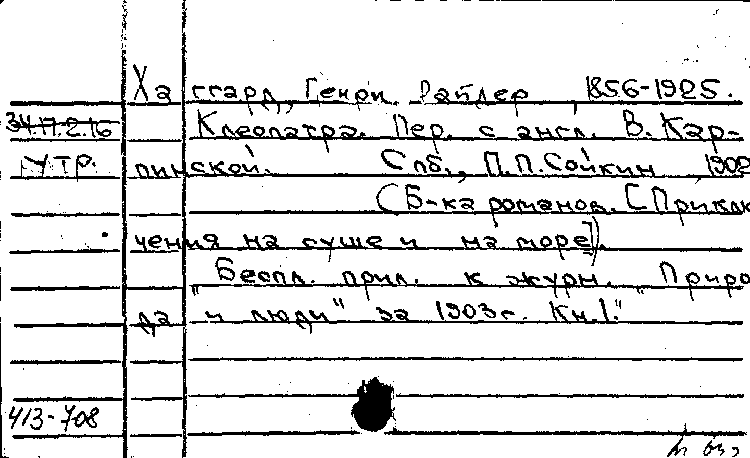 Хаггард, Генри Райдер, 1856-1925.
34.17.2.16 Клеопатра. Пер. с англ. В. Кар-
утр. пинской. Спб., П.П. Сойкин, 1902
(Б-ка романов. [Приклю
чения на суше и на море])
"Беспл. прил. к журн. "Приро
да и люди" за 1903г. Кн.1."
413-708